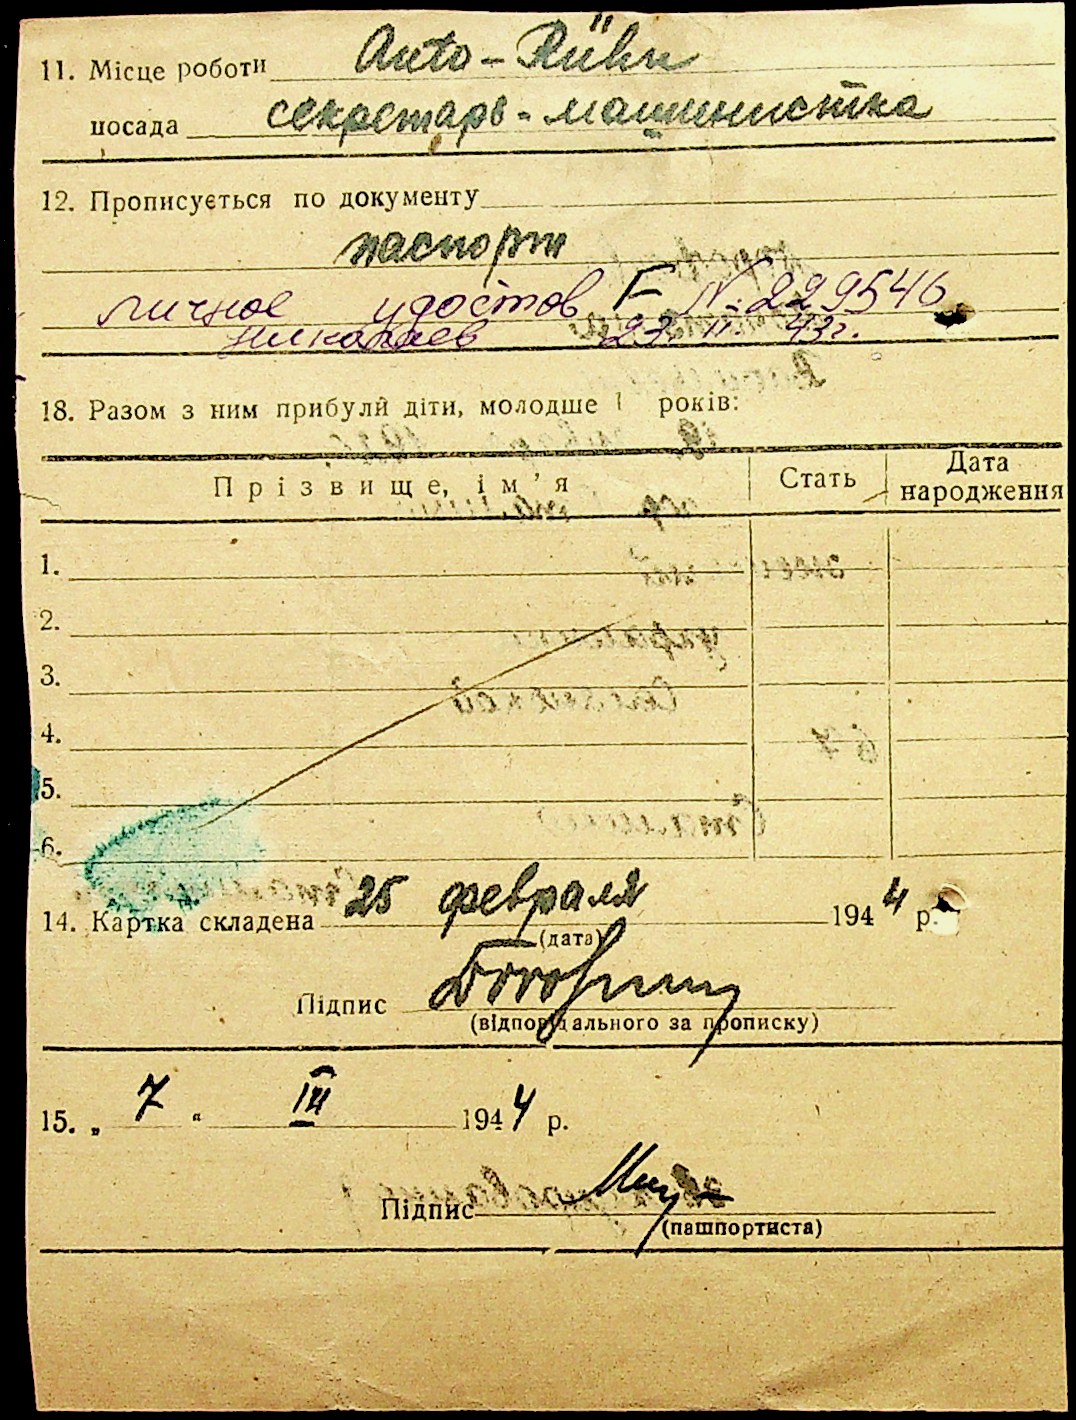 11. Місце роботи Auto-Rühn
посада секретарь-машинистка
12. Прописується по документу
паспорт
личное удостов F № 229546
23. II. 43г.
18. Разом з ним прибули діти, молодше 1 років:
Прізвище, ім'я Стать Дата народження
1.
2.
3.
4.
5.
6.
14. Картка складена 25 февраля 1944 р.
(дата)
Підпис
(відповідального за прописку)
15. „ 7 “ III 1944 р.
Підпис
(пашпортиста)